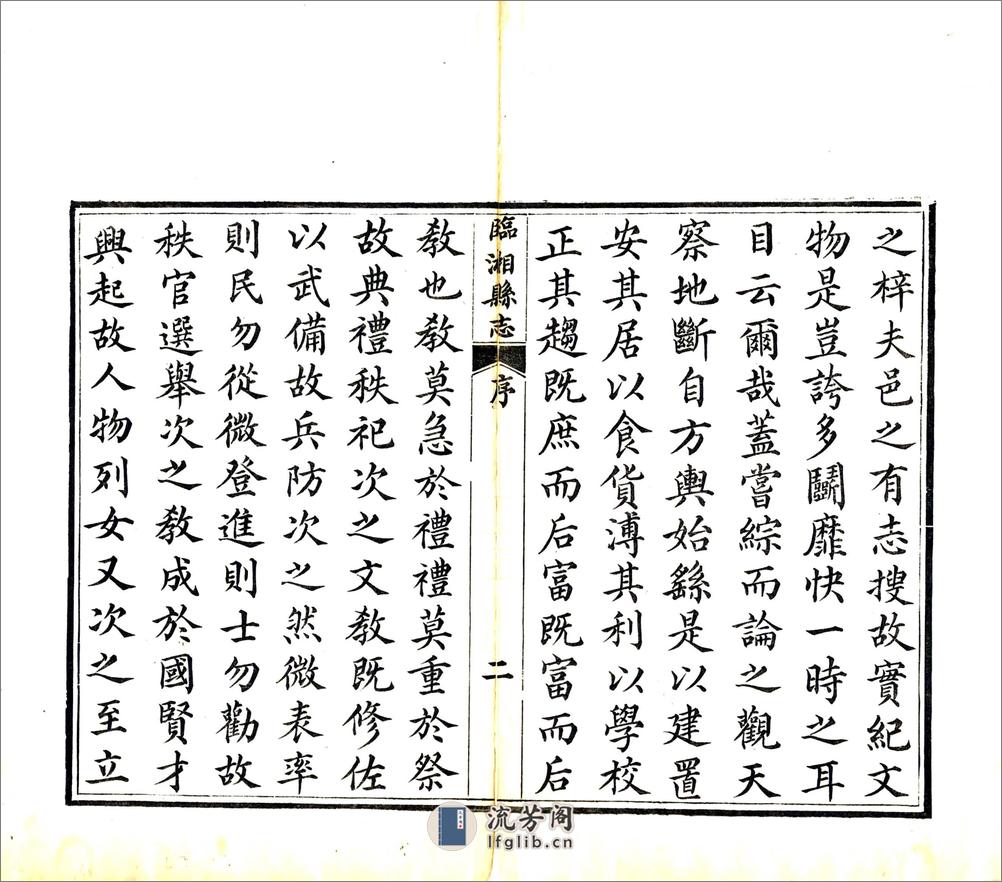 之梓夫邑之有志搜故實紀文
物是豈誇多鬬靡快一時之耳
目云爾哉蓋嘗綜而論之觀天
察地斷自方輿始繇是以建置
安其居以食貨溥其利以學校
正其趨既庶而后富既富而后
臨湘縣志
序
二
教也教莫急於禮禮莫重於祭
故典禮秩祀次之文教既修佐
以武備故兵防次之然微表率
則民勿從微登進則士勿勸故
秩官選舉次之教成於國賢才
興起故人物列女又次之至立
流芳阁
lfglib.cn